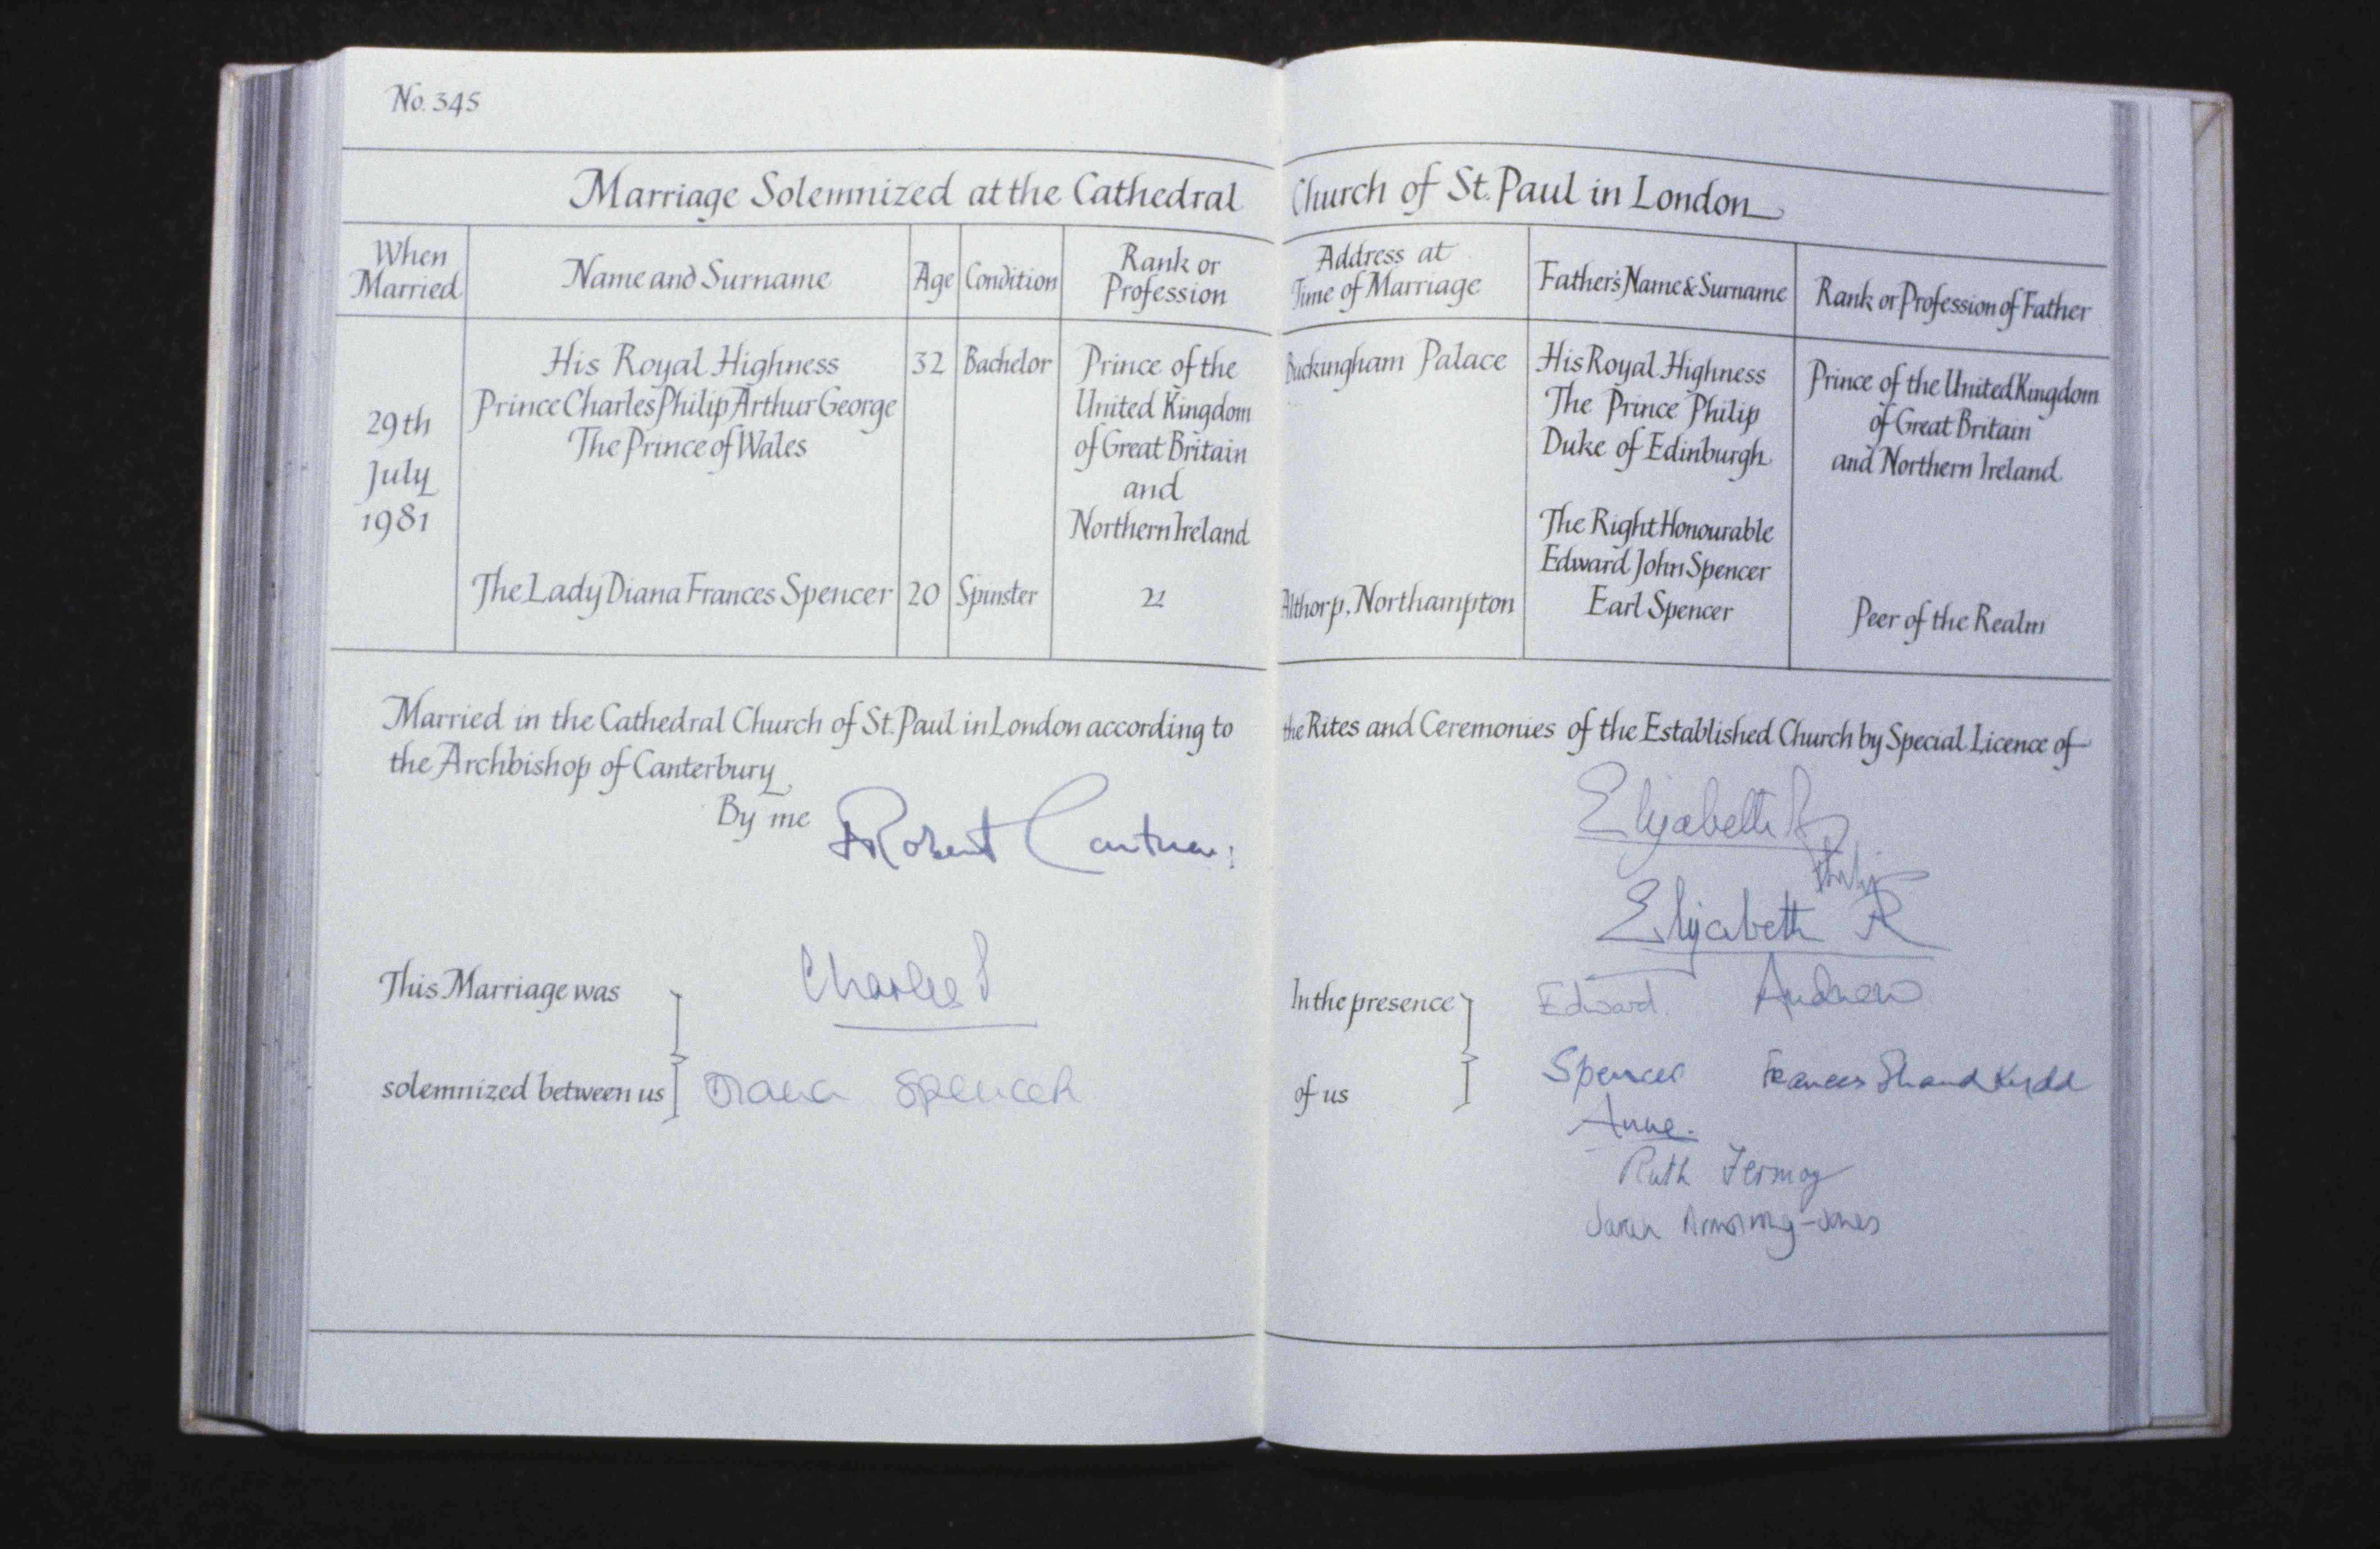 No. 345
Marriage Solemnized at the Cathedral Church of St. Paul in London
When Married
Name and Surname
Age
Condition
Rank or Profession
Address at Time of Marriage
Father's Name & Surname
Rank or Profession of Father
29th
July
1981
His Royal Highness
Prince Charles Philip Arthur George
The Prince of Wales
32
Bachelor
Prince of the
United Kingdom
of Great Britain
and
Northern Ireland
Buckingham Palace
His Royal Highness
The Prince Philip
Duke of Edinburgh
Prince of the United Kingdom
of Great Britain
and Northern Ireland
The Lady Diana Frances Spencer
20
Spinster
Althorp, Northampton
The Right Honourable
Edward John Spencer
Earl Spencer
Peer of the Realm
Married in the Cathedral Church of St. Paul in London according to the Rites and Ceremonies of the Established Church by Special Licence of
the Archbishop of Canterbury
By me Robert Cantuar:
This Marriage was
solemnized between us
Charles P
Diana Spencer
In the presence
of us
Elizabeth R
Philip
Elizabeth R
Edward Andrew
Spencer Frances Shand Kydd
Anne.
Ruth Fermoy
Sarah Armstrong-Jones